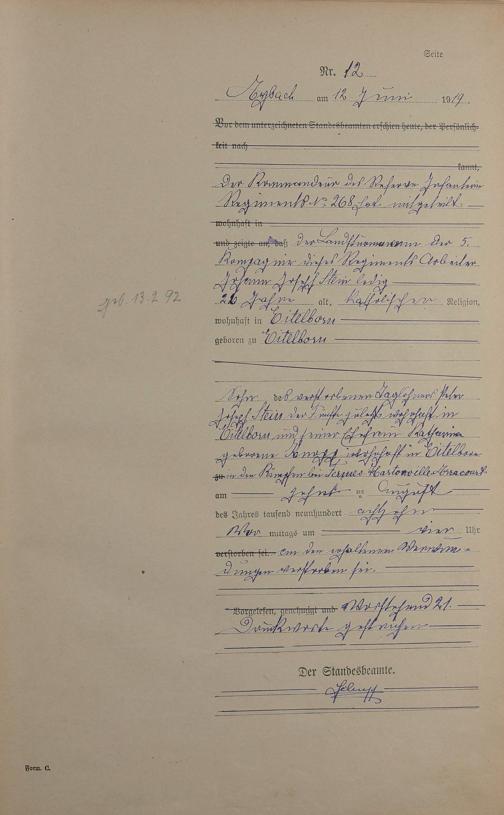 Seite
Nr. 12
Arzbach am 12 Juni 1919.
Vor dem unterzeichneten Standesbeamten erschien heute, der Persönlich-
keit nach
kannt,
Der Kommandeur des Reserve Infanterie
Regiments No 268 hat mitgeteilt
wohnhaft in
und zeigte an, daß der Landsturmmann der 5.
Kompagnie dieses Regiments Arbeiter
Johann Joseph Stein ledig
26 Jahre alt, katholischer Religion,
wohnhaft in Eitelborn
geboren zu Eitelborn
geb. 13.2 92
Sohn des verstorbenen Taglöhners Peter
Joseph Stein der zuletzt wohnhaft in
Eitelborn und seiner Ehefrau Katharina
geborene wohnhaft in Eitelborn
zu in den Kämpfen bei
am zehnt en August
des Jahres tausend neunhundert achtzehn
Vor mittags um vier Uhr
verstorben sei. an den erhaltenen Verwun-
dungen verstorben sei.
Vorgelesen, genehmigt und Vorstehend 21.
Druckworte gestrichen
Der Standesbeamte.
Form. C.